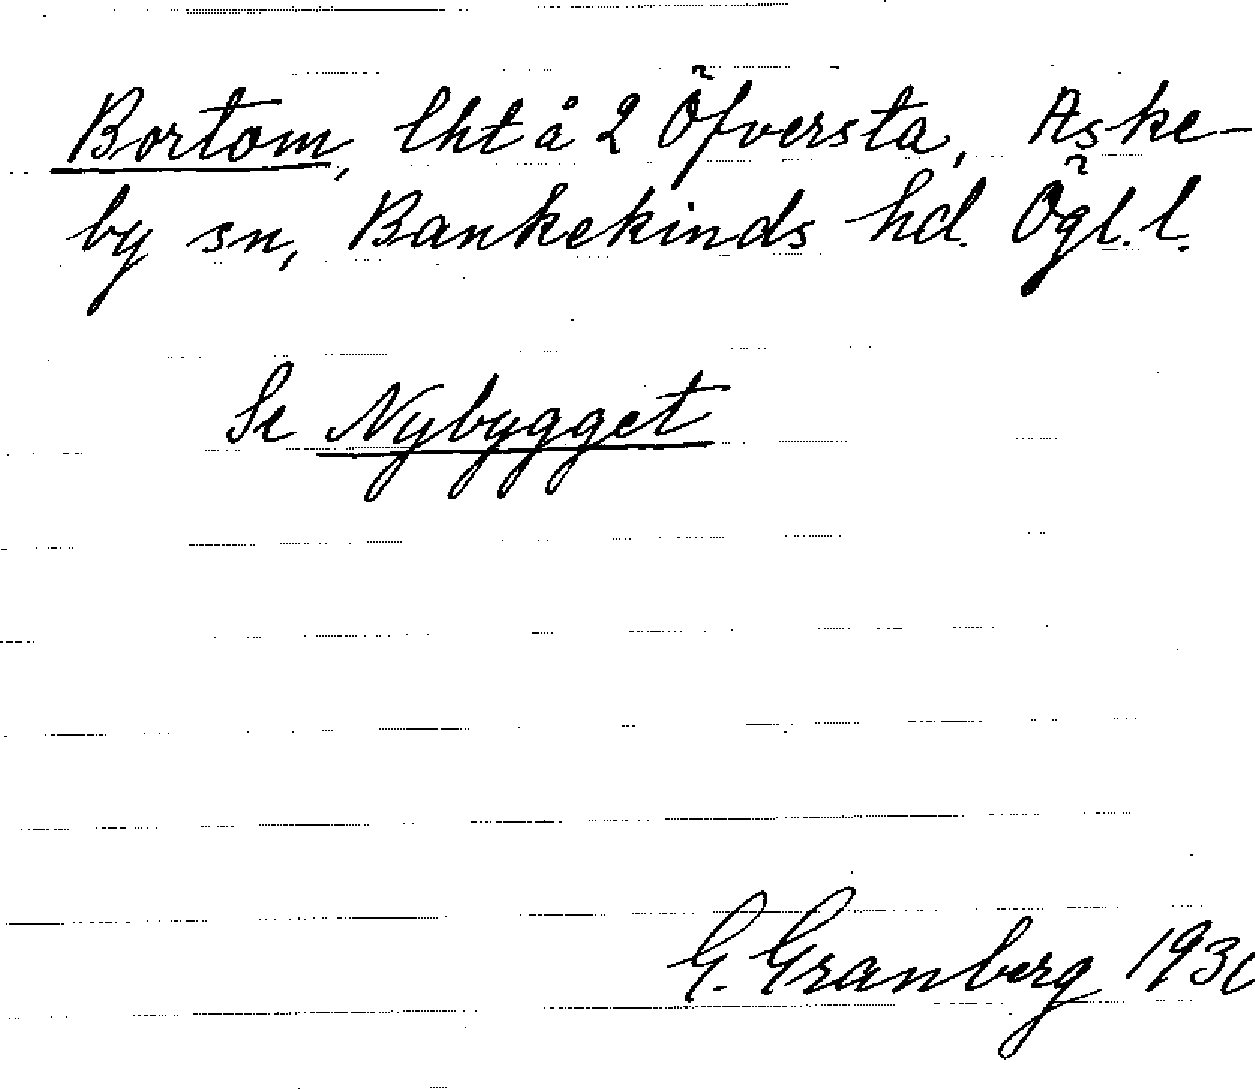 Bortom, lht å 2 Öfversta, Aske-
by sn, Bankekinds hd. Ögl. l.
Se Nybygget
G. Granberg 1930